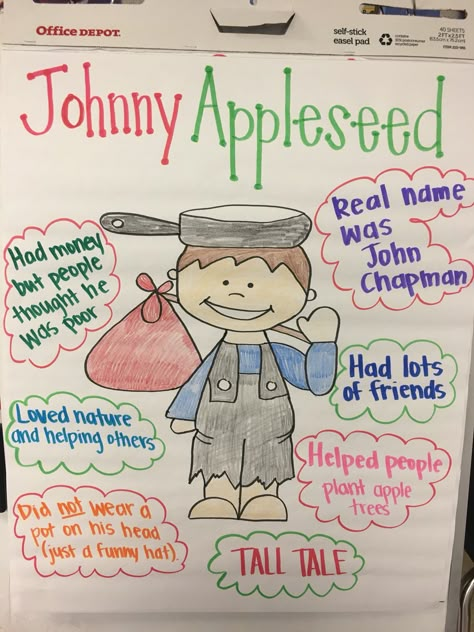 Office DEPOT.
self-stick
easel pad
40 SHEETS
Johnny Appleseed
Real name
was
John
Chapman
Had money
but people
thought he
was poor
Had lots
of friends
Loved nature
and helping others
Helped people
plant apple
trees
Did not wear a
pot on his head
(just a funny hat).
TALL TALE